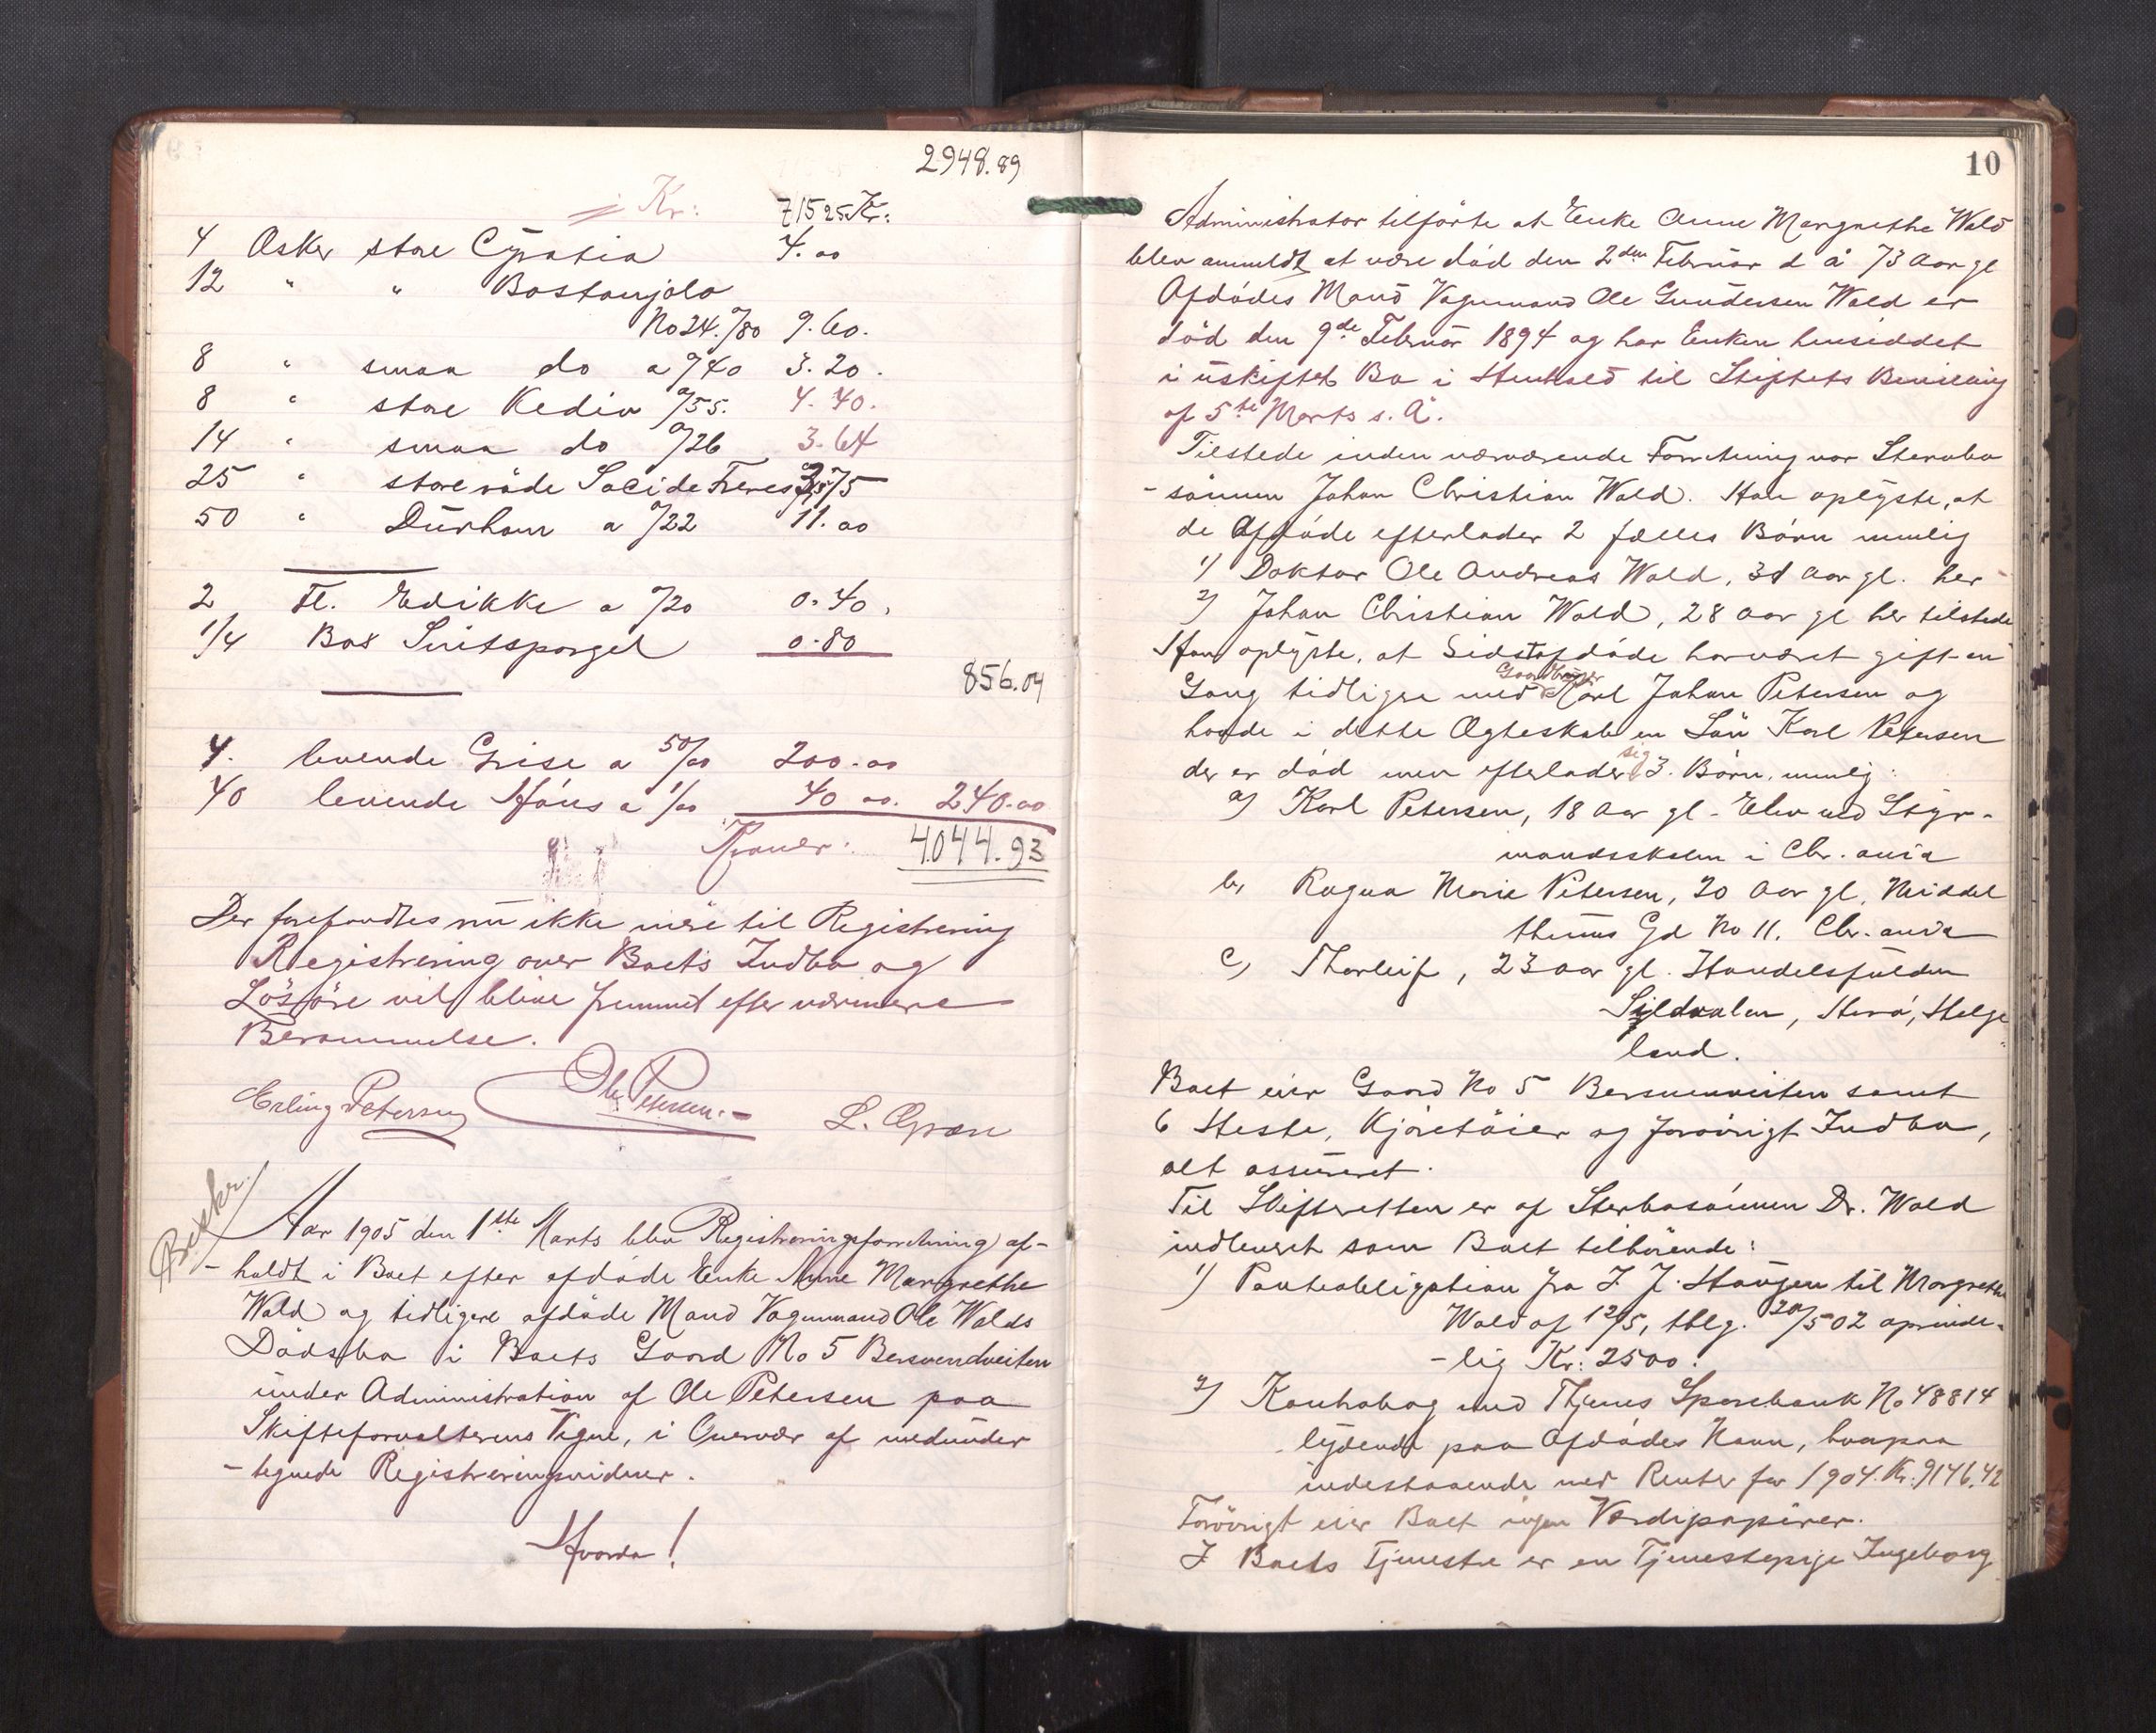 2948.89
Kr: 715 25 Kr:
4 Æsker store Cypratia 4.00
12 " " Bostanjolo
No 24. a /80 9.60.
8 " smaa do a /40 3.20.
8 " store Kediv a /55. 4.40.
14 " smaa do a /26 3.64
25 " store röde Socide Freres 75
50 " Dürham a /22 11.00
2 Fl. Edikke a /20 0.40.
1/4 Bos 0.80
856.04
4. levende Grise a 50/00 200.00
40 levende Höns a 1/00 40 00. 240.00
Kroner: 4044.93
Der forefandtes nu ikke mere til Registrering
Registrering over Boets Indbo og
Lösöre vil blive fremmet efter nærmere
Berammelse.
Erling Petersen Ole Petersen.- L. Græn
Bekr.
Aar 1905 den 1ste Marts blev Registreringsforretning af-
- holdt i Boet efter afdöde Enke Anne Margrethe
Wold og tidligere afdöde Mand Vognmand Ole Wolds
Dödsbo i Boets Gaard No 5 Bersvendveiten
under Administration af Ole Petersen paa
Skifteforvalterens Vegne, i Overvær af nedunder
- tegnede Registreringsvidner.
Hvorda!
10
Administrator tilförte at Enke Anne Margrethe Wold
blev anmeldt at være död den 2den Februar d å 73 Aar gl
Afdödes Mand Vognmand Ole Gundersen Wold er
död den 9de Februar 1894 og har Enken hensiddet
i uskiftet Bo i Henhold til Stiftets Bevilling
af 5te Marts s. Å.
Tilstede under nærværende Forretning var Stervbo
- sönnen Johan Christian Wold. Han oplyste, at
de Afdöde efterlader 2 fælles Börn nemlig
1) Doktor Ole Andreas Wold, 31 Aar gl. her
2) Johan Christian Wold, 28 Aar gl her tilstede
Han oplyste, at Sidstafdöde har været gift en
Gang tidligere med Gaardbruger Karl Johan Petersen og
havde i dette Ægteskab en Sön Karl Petersen
der er död men efterlader sig 3. Börn, nemlig:
a) Karl Petersen, 18 Aar gl - Elev ved Styr-
mandsskolen i Chr. ania
b, Ragna Marie Petersen, 20 Aar gl, Middel
thuns Gd No 11. Chr. ania
c, Thorleif, 23 Aar gl. Handelsfuldm
Sildvalen, Herö, Helge
land.
Boet eier Gaard No 5 Bersvenveiten samt
6 Heste, Kjöretöier og forövrigt Indbo,
alt assureret.
Til Skifteretten er af Sterbosönnen Dr. Wold
indleveret som Boet tilhörende:
1) Panteobligation fra I. J. Haugen til Margrethe
Wold af 12/5, thlg. 20/5 02 oprinde-
- lig Kr: 2500.
2) Kontrabog med Thjems Sparebank No 48814
lydende paa Afdödes Navn, hvorpaa
indestaaende med Renter for 1904. Kr. 9146.42
Forövrigt eier Boet ingen Værdipapirer.
I Boets Tjeneste er en Tjenestepige Ingeborg